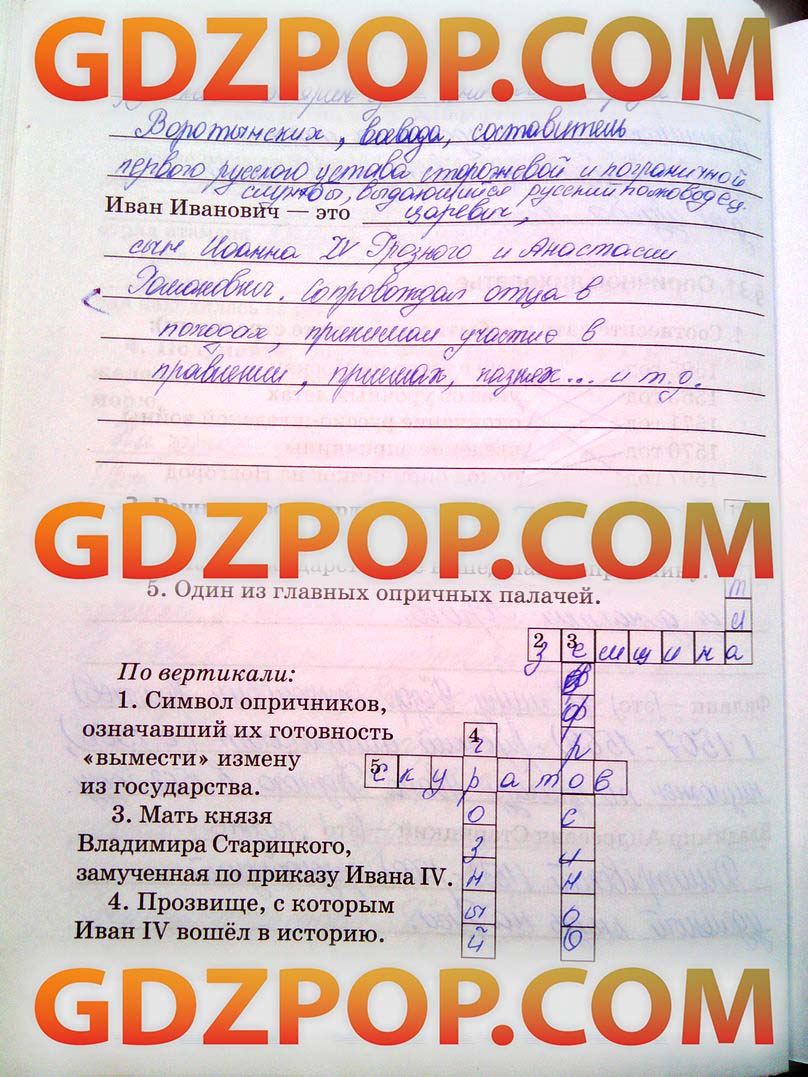 GDZPOP.COM
Воротынских, воевода, составитель
первого русского устава сторожевой и пограничной
службы, выдающийся русский полководец.
Иван Иванович — это царевич,
сын Иоанна IV Грозного и Анастасии
Романович. Сопровождал отца в
походах, принимал участие в
правлении, приемах, казнях... и т.д.
GDZPOP.COM
5. Один из главных опричных палачей.
т
и
2 3
земщина
По вертикали:
1. Символ опричников,
означавший их готовность
«вымести» измену
из государства.
3. Мать князя
Владимира Старицкого,
замученная по приказу Ивана IV.
4. Прозвище, с которым
Иван IV вошёл в историю.
4
г
5
скуратов
р
о
з
н
ы
й
ф
р
о
с
и
н
GDZPOP.COM